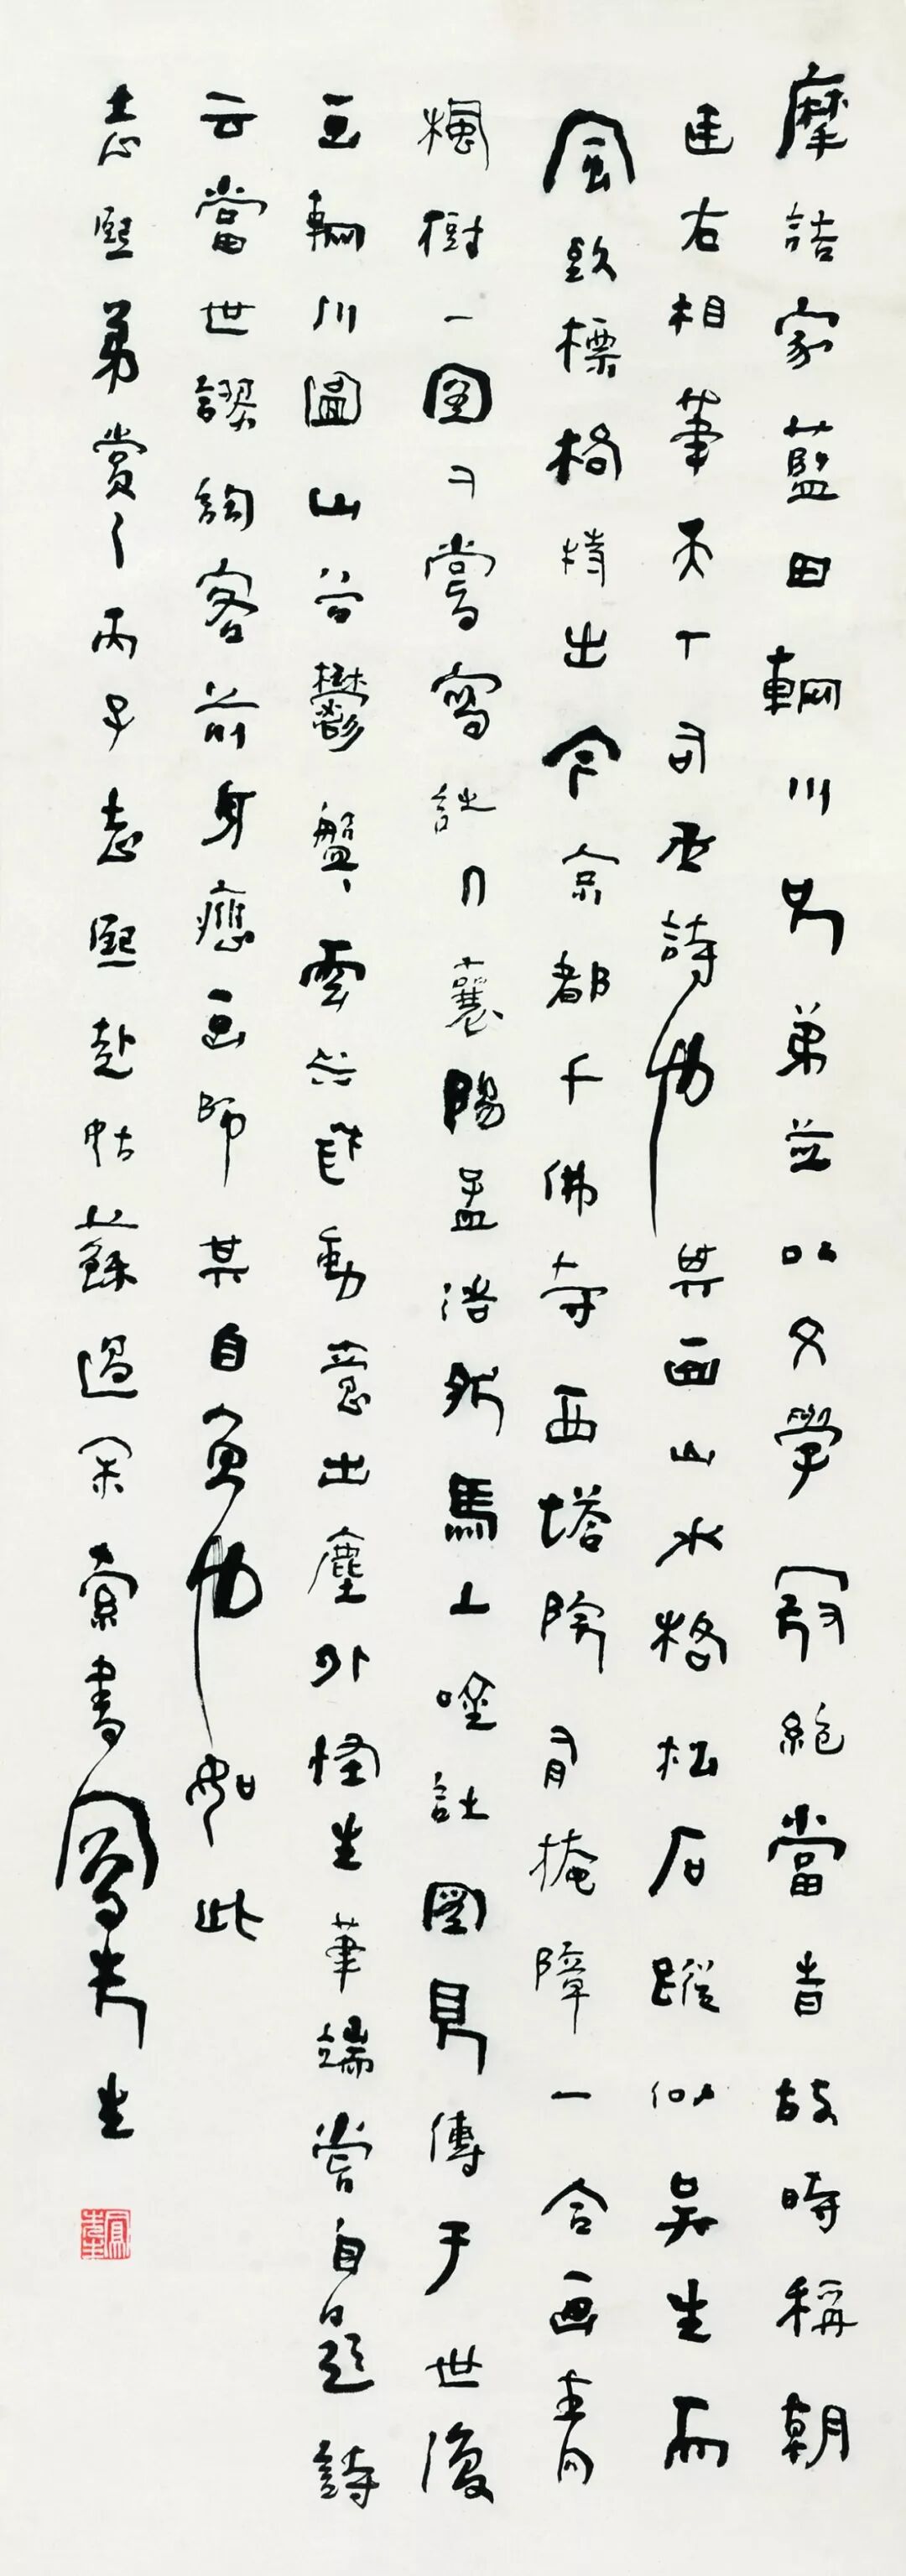 摩詰家藍田輞川兄弟並以文學冠絕當旹故時稱朝
廷右相筆天丅右丞詩也其画山水格松石蹤似吳生而
風致標格特出今京都千佛寺西塔院有掩障一合画青
楓樹一圖又嘗寫詩人襄陽孟浩然馬上唫詩圖見傳于世復
画輞川圖山谷鬱盤、雲水飛動意出塵外怪生筆端嘗自題詩
云當世謬詞客前身應画師其自負也如此
志熙弟賞之丙子志熙赴姑蘇過索書鳳先生